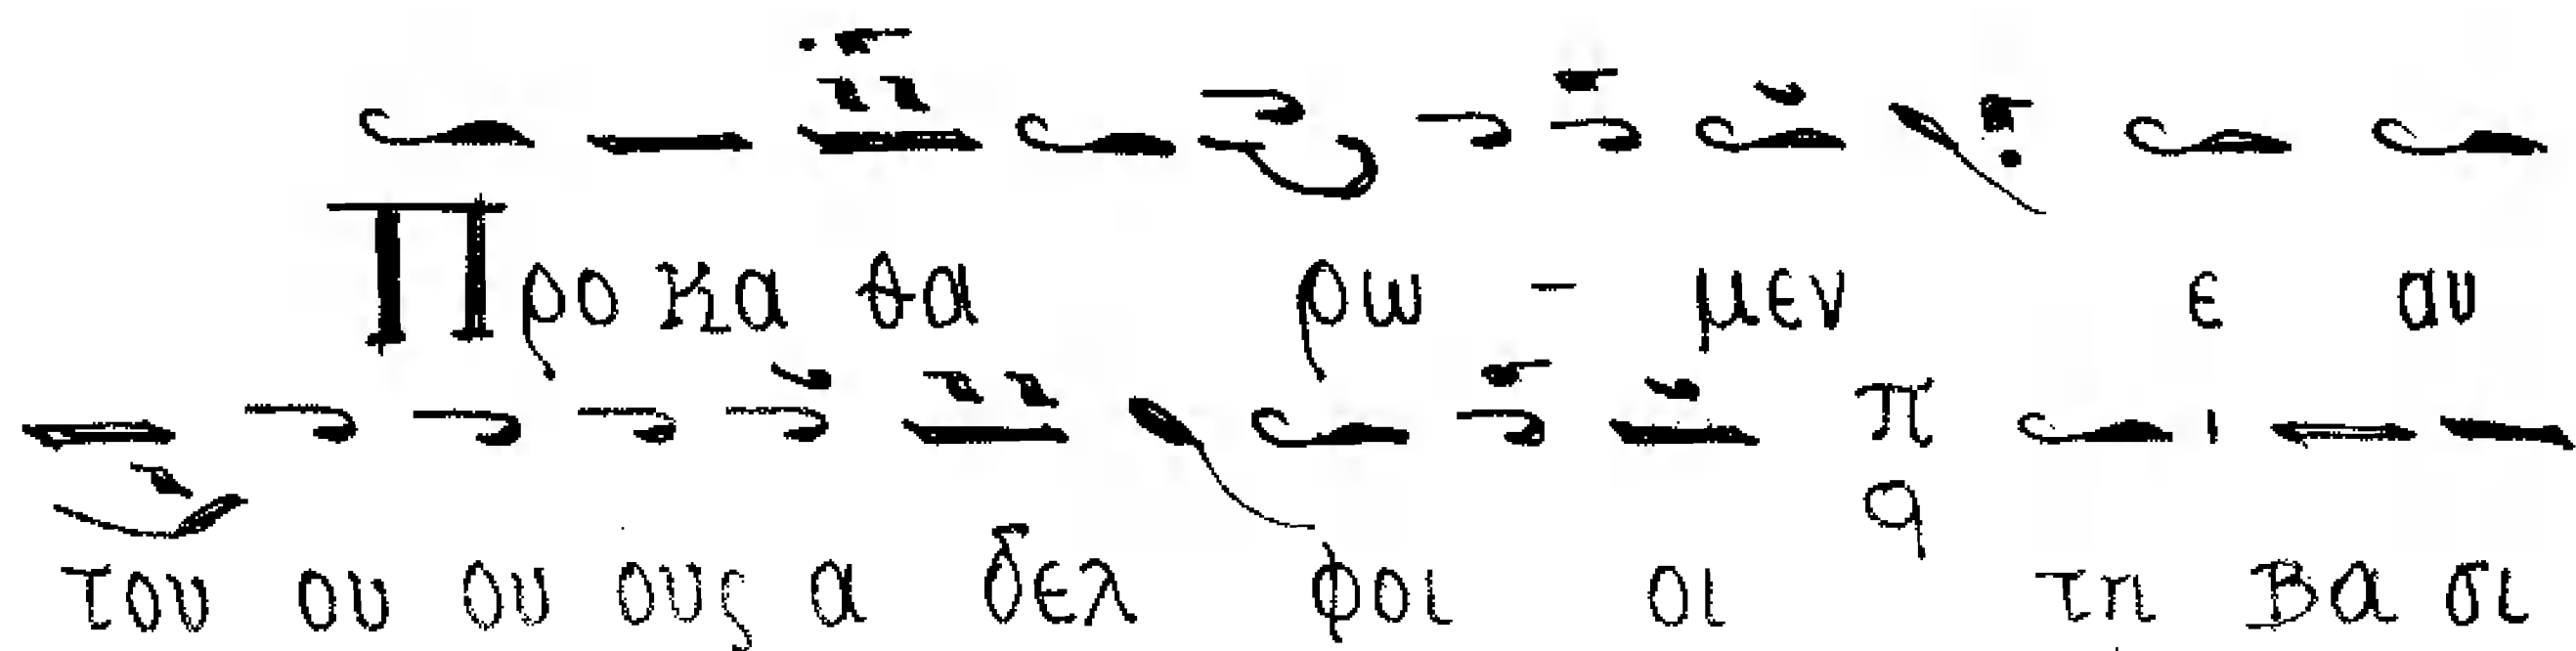 Προ κα θα ρω - μεν ε αυ
του ου ου ους α δελ φοι οι π q τη Βα σι